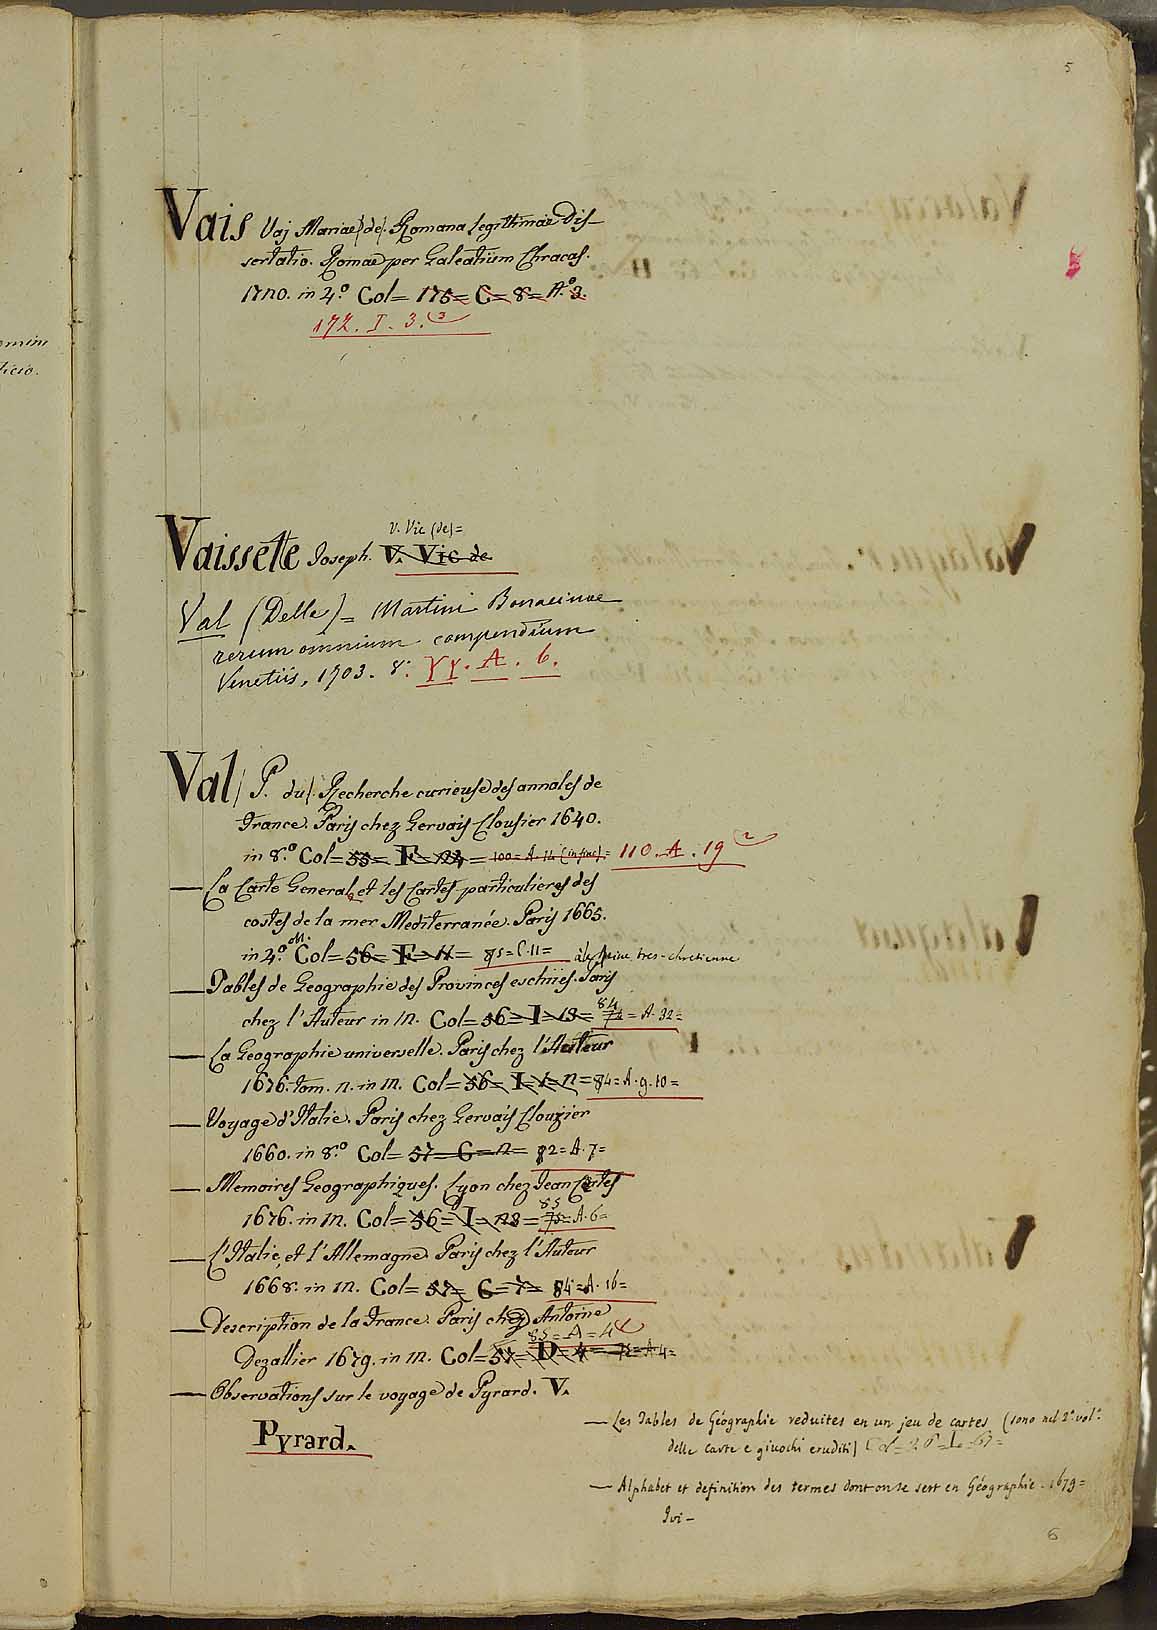 5
Vais Vaj Mariae (de). Romana legitimae Dis-
sertatio. Romae per Galeatium Chracas.
1720. in 4.º Col= 175= C= 8= A.º 3.
172. I. 3. (3
Vaissette Joseph. V. Vic de
V. Vic (de)=
Val (Delle)= Martini Bonacinae
rerum omnium compendium
Venetiis, 1703. 8: YY. A. 6.
Val (P. du). Recherche curieuse des annales de
France. Paris chez Gervais Clousier 1640.
in 8.º Col= 55= F= 24= 100= A. 14 (in fine)= 110. A. 19 (2
— La Carte General, et les Cartes particulieres des
costes de la mer Mediterranée. Paris 1665.
in 4.º obl. Col= 56= F= 11= 85= C. 11= tres-chretienne
— Tables de Geographie des Provinces eschües. Paris
chez l'Auteur in 12. Col= 56= I= 13= 84 = A. 32=
— La Geographie universelle. Paris chez l'Auteur
1676. tom. 2. in 12. Col= 56= I= 1= 2= 84= A. 9. 10=
— Voyage d'Italie. Paris chez Gervais Clouzier
1660. in 8.º Col= 57= C= 2= 82= A. 7=
— Memoires Geographiques. Lyon chez Jean Certes
1676. in 12. Col= 56= I= 28= 85 = A. 6=
— L'Italie, et l'Allemagne. Paris chez l'Auteur
1668. in 12. Col= 57= C= 7= 84= A. 16=
— Description de la France. Paris chez Antoine
85= A= 4
Dezallier 1679. in 12. Col= 57= D= 4= 75= A 4=
— Observations sur le voyage de Pyrard. V.
Pyrard.
— Les Tables de Géographie reduites en un jeu de cartes (sono nel 2.º vol.º
delle carte e giuochi eruditi)
— Alphabet et definition des termes dont on se sert en Géographie. 1679=
Ivi—
6